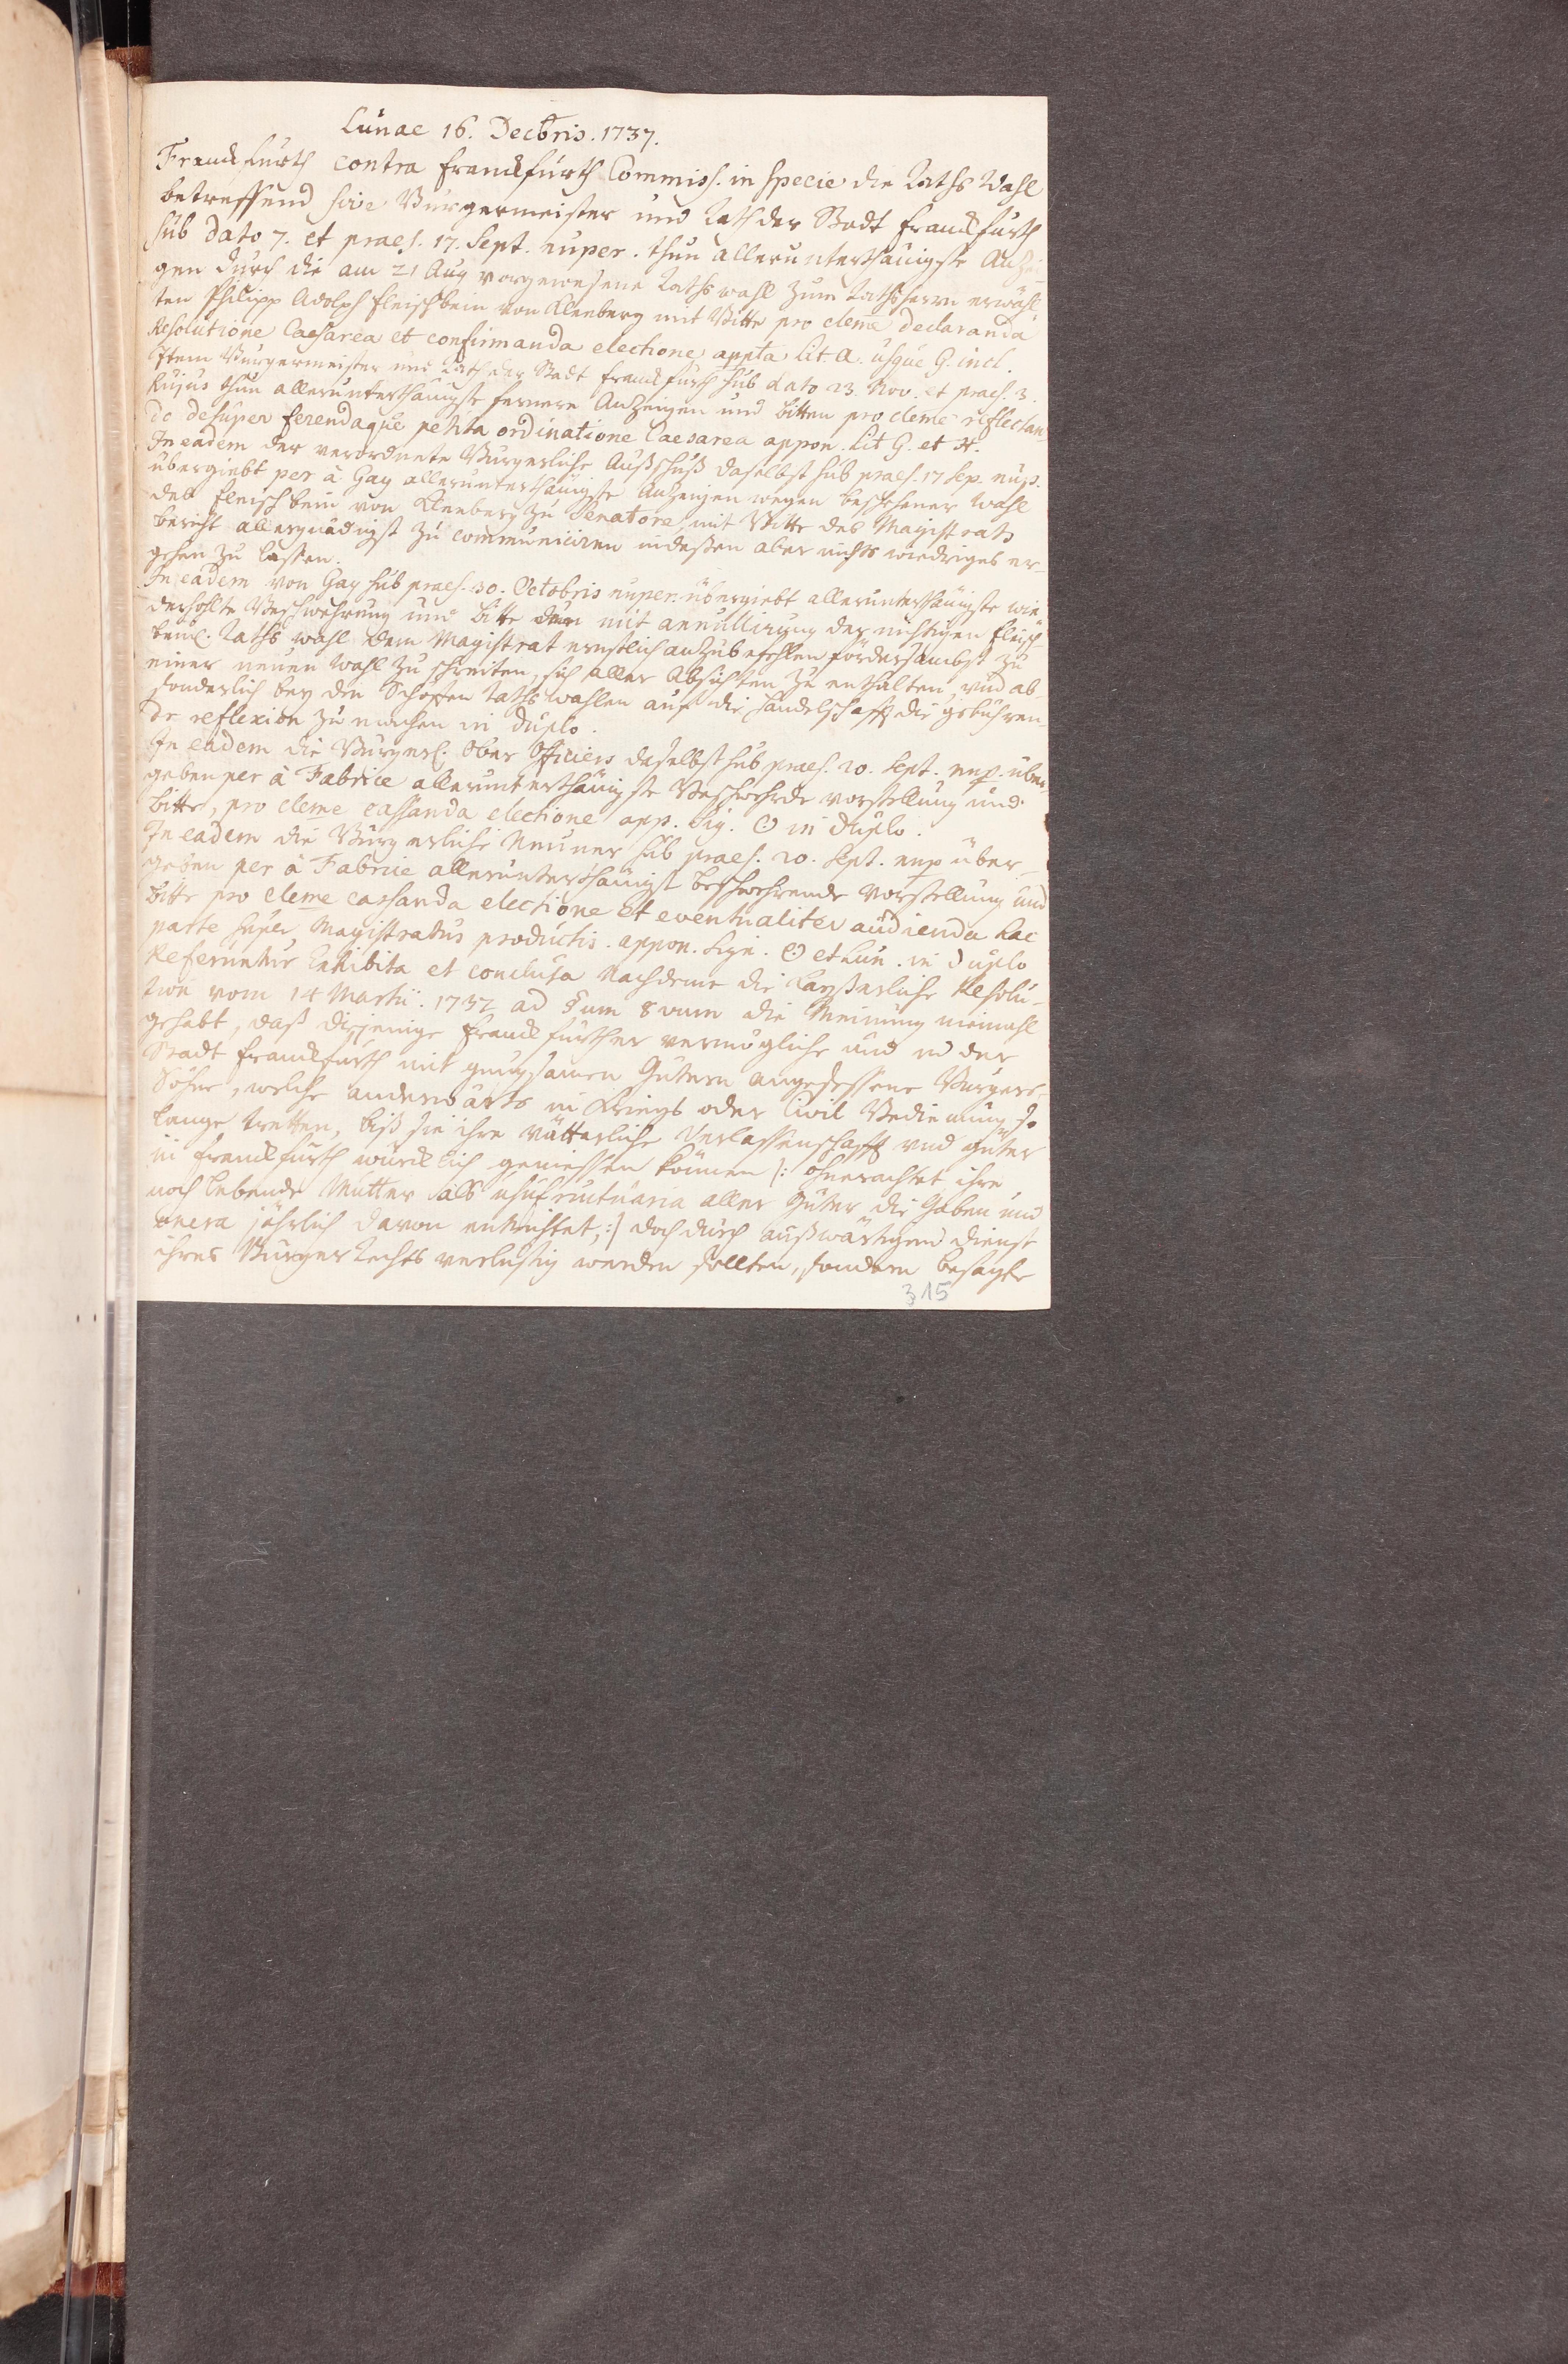 Lunae 16. Decbris. 1737.
Franckfurth contra Franckfurth Commiss. in specie die Raths Wahl
betreffend sive Burgermeister und Rath der Stadt Franckfurth
sub dato 7. et praes. 17. Sept. nuper. thun allerunterthänigste Anzei-
gen durch die am 21 Aug vorgewesene Rathswahl zum Rathsherrn erwähl-
ten Philipp Adolph Fleischbein von Kleeberg mit Bitte pro cleme declaranda
Resolutione Caesarea et confirmanda electione, appta Lit. A. usque G. incl.
Item Burgermeister und Rath der Stadt Franckfurth sub dato 23. Nov. et praes. 3.
hujus thun allerunterthänigste fernere Anzeigen und bitten pro cleme reflectan-
do desuper ferendaque petita ordinatione Caesarea appon. Lit G. et H.
In eadem der verordnete Burgerliche Außschuß daselbst sub praes. 17 Sep. nup.
übergiebt per à Gay allerunterthänigste Anzeigen wegen beschehener Wahl
des Fleischbein von Kleeberg zu Senatore, mit Bitte des Magistrats
bericht allergnädigst zu communiciren indessen aber nichts wiedriges er-
gehen zu lassen.
In eadem von Gay sub praes. 30. Octobris nuper. übergiebt allerunterthänigste wie-
derhohlte Beschwehrung und bitte mit annullirung der nichtigen Fleisch-
beinl. Raths wahl dem Magistrat ernstlich anzubefehlen fördersambst zu
einer neuen Wahl zu schreiten, sich aller Absichten zu enthalten, und ab-
sonderlich bey den Schöffen Raths wahlen auf die Handelschafft die gebühren-
de reflexion zu machen in duplo.
In eadem die Burgerl. Ober Officiers daselbst sub praes. 20. Sept. nup. über-
geben per à Fabrice allerunterthänigste Beschwehrde vorstellung und
bitte, pro cleme cassanda electione app. Sig. ☉ in duplo.
In eadem die Burgerliche Neuner sub praes. 20. Sept. nup über-
geben per à Fabrice allerunterthänigst beschwehrende vorstellung und
bitte pro cleme cassanda electione et eventualiter audienda hac
parte super Magistratus productis. appon. Sign. ☉ et Lun. in duplo
Referuntur Exhibita et conclusa Nachdeme die Kayßerliche Resolu-
tion vom 14 Martii. 1732 ad §um 8vum die Meinung niemahl
gehabt, daß diejenige Franckfurther vermögliche und in der
Stadt Franckfurth mit gnugsamen Gütern angesessene Burgers-
Söhne, welche anderwärts in Kriegs oder Civil Bedienung so
lange tretten, biß sie ihre vätterliche Verlassenschafft und güter
in Franckfurth würcklich geniessen können /: ohnerachtet ihre
noch lebende Mutter als usufructuaria aller Güter die Gaben und
onera jährlich davon entrichtet, :/ doch durch außwärtigen dienst
ihres Burger Rechts verlustig werden sollten, sondern besagte
315